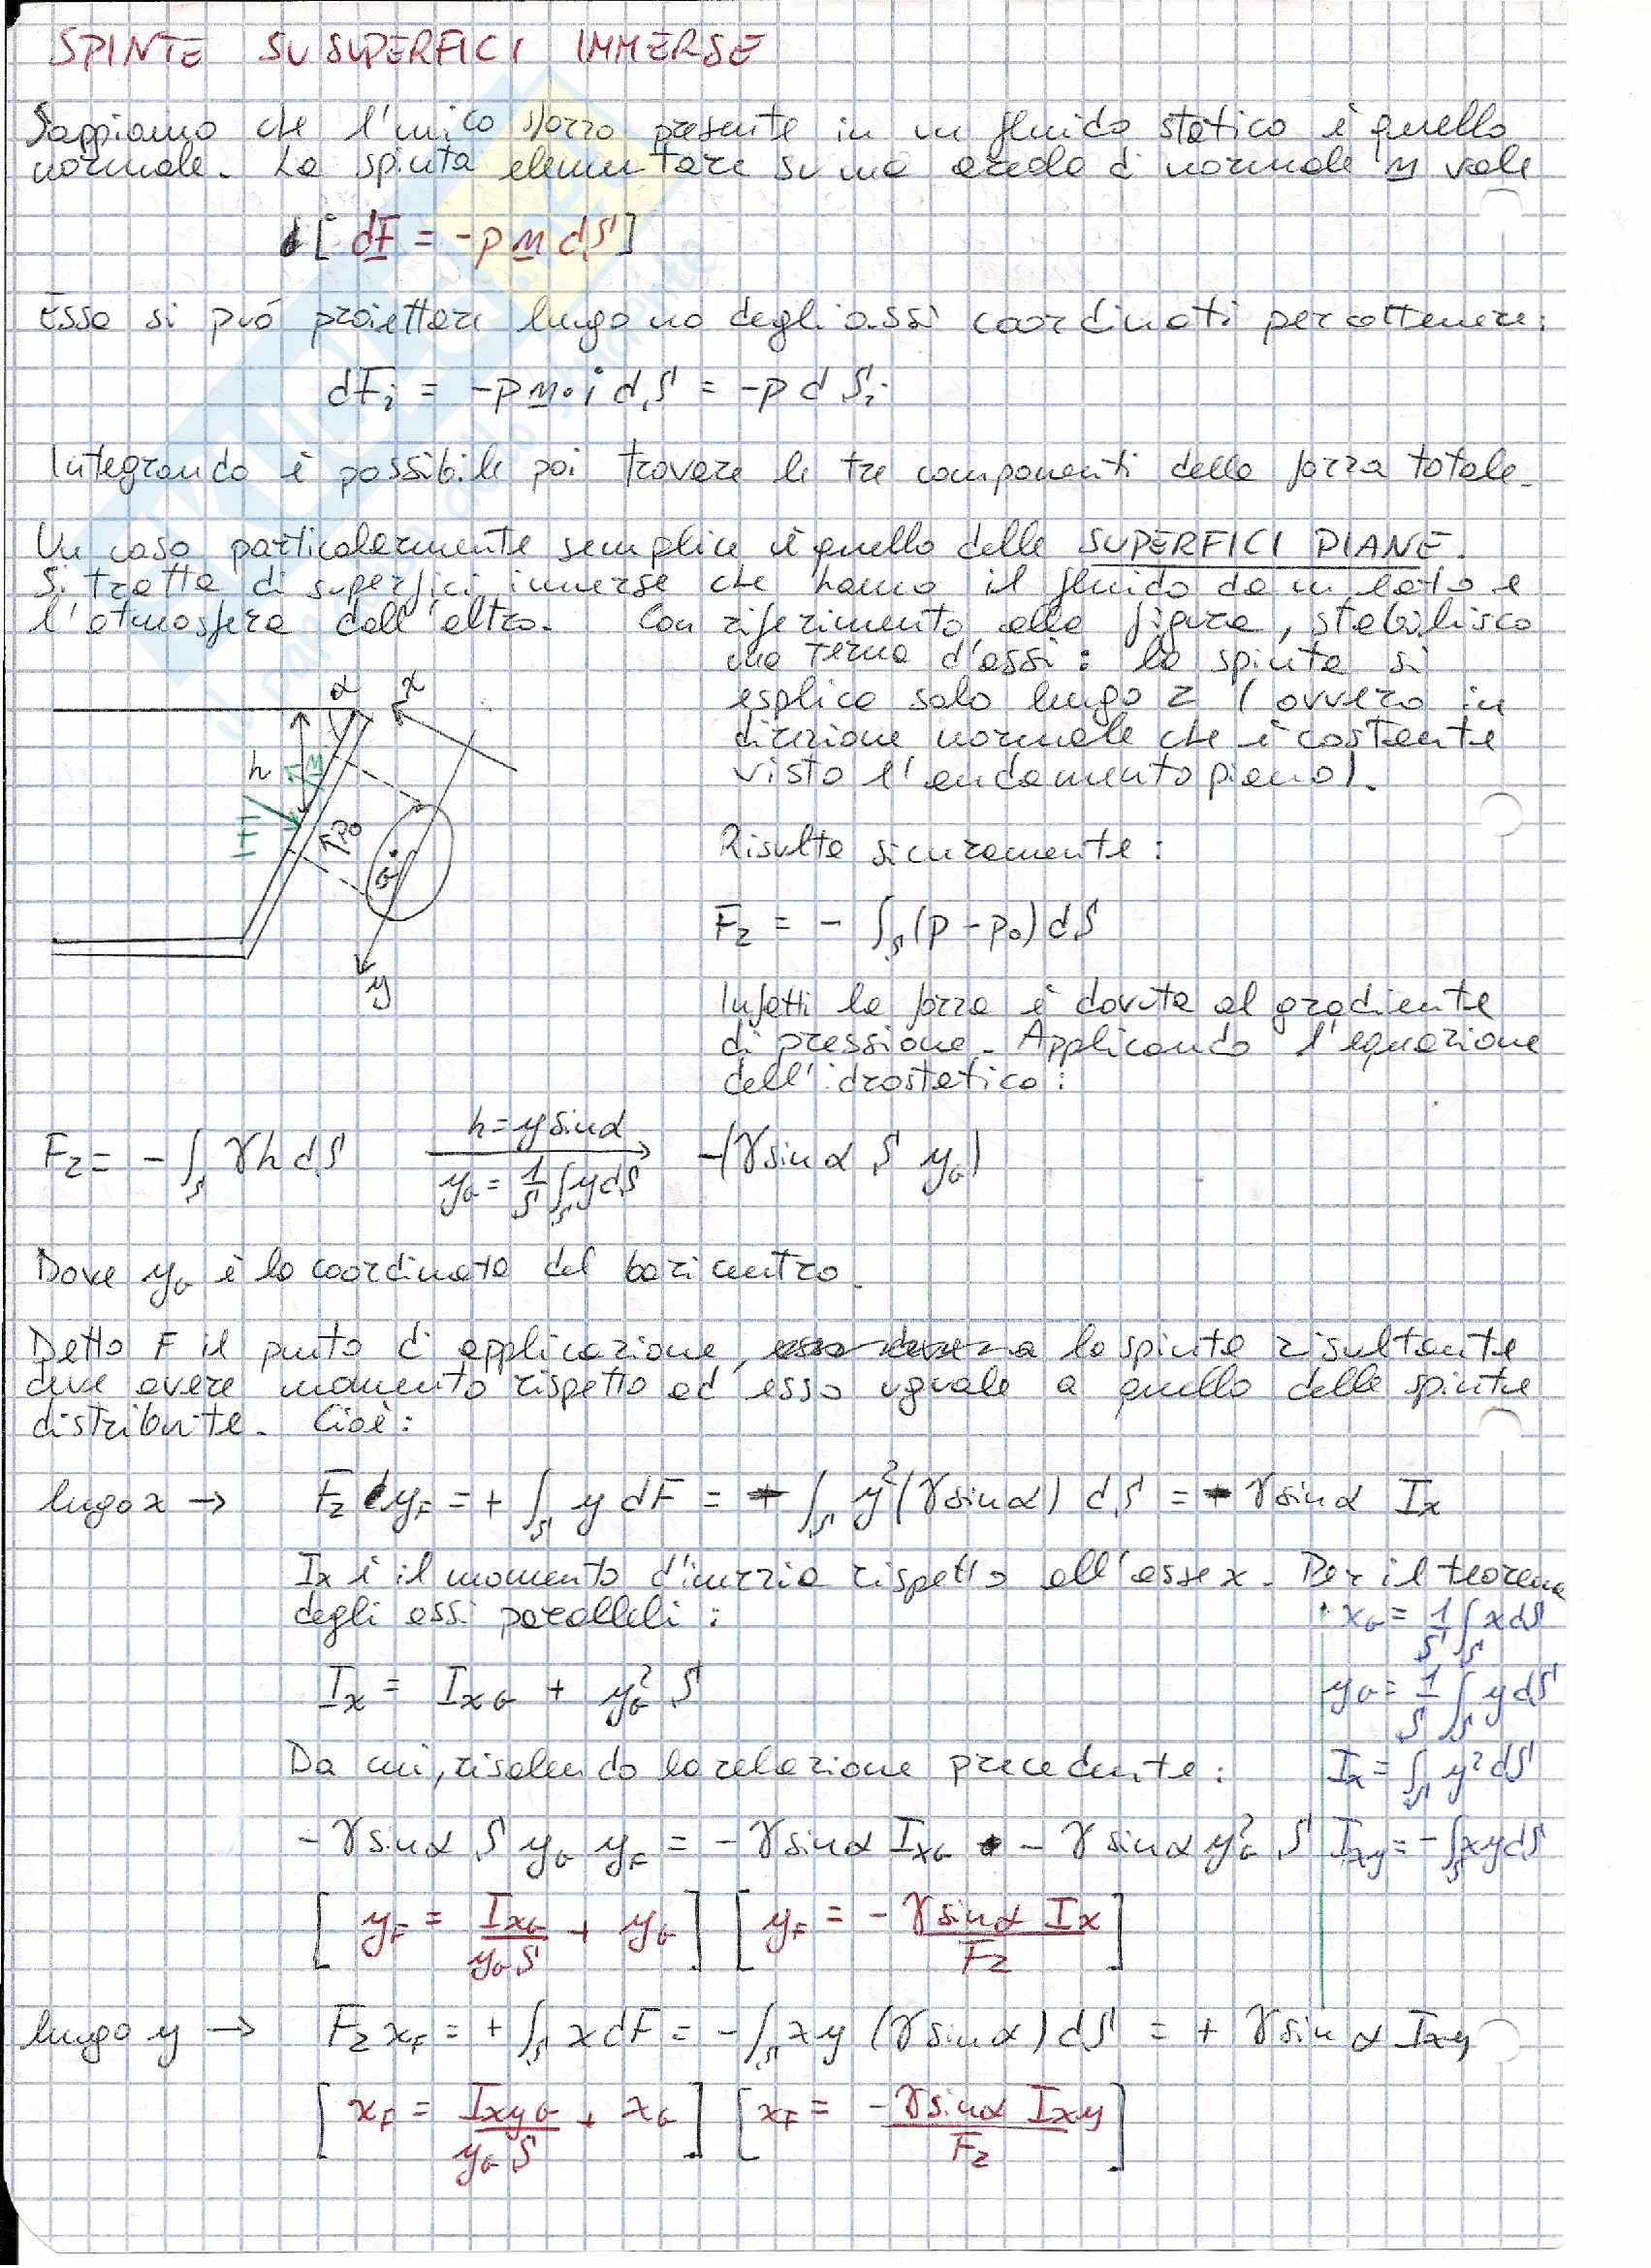 SPINTE SU SUPERFICI IMMERSE
Sappiamo che l'unico sforzo presente in un fluido statico è quello
normale. La spinta elementare su una areola di normale n vale
[ dF = -p n dS ]
Esso si può proiettare lungo uno degli assi coordinati per ottenere:
dFi = -p n · i dS = -p d Si
Integrando è possibile poi trovare le tre componenti della forza totale.
Un caso particolarmente semplice è quello delle SUPERFICI PIANE.
Si tratta di superfici immerse che hanno il fluido da un lato e
l'atmosfera dall'altro. Con riferimento alla figura, stabilisco
una terna d'assi: la spinta si
esplica solo lungo z (ovvero in
direzione normale che è costante
visto l'andamento piano).
α x
h n
p0
G
y
Risulta sicuramente:
Fz = - ∫S (p - p0) dS
Infatti la forza è dovuta al gradiente
di pressione. Applicando l'equazione
dell'idrostatica:
Fz = - ∫S γh dS   h = y sinα   yG = 1/S ∫S y dS   -(γ sin α S yG)
Dove yG è la coordinata del baricentro.
Detto F il punto di applicazione, la spinta risultante
deve avere momento rispetto ad esso uguale a quello delle spinte
distribuite. Cioè:
lungo x → Fz yF = + ∫S y dF = - ∫S y² (γ sin α) dS = - γ sin α Ix
Ix è il momento d'inerzia rispetto all'asse x. Per il teorema
degli assi paralleli:
xG = 1/S ∫S x dS
Ix = IxG + yG² S
yG = 1/S ∫S y dS
Da cui, risolvendo la relazione precedente:
Ix = ∫S y² dS
- γ sin α S yG yF = - γ sin α IxG - γ sin α yG² S
Ixy = - ∫S xy dS
[ yF = IxG / yG S + yG ] [ yF = - γ sin α Ix / Fz ]
lungo y → Fz xF = + ∫S x dF = - ∫S xy (γ sin α) dS = + γ sin α Ixy
[ xF = IxyG / yG S + xG ] [ xF = - γ sin α Ixy / Fz ]